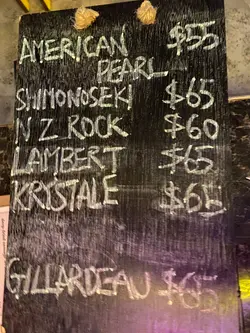 AMERICAN $55
PEARL
SHIMONOSEKI $65
N Z ROCK $60
LAMBERT $65
KRYSTALE $65
GILLARDEAU $65